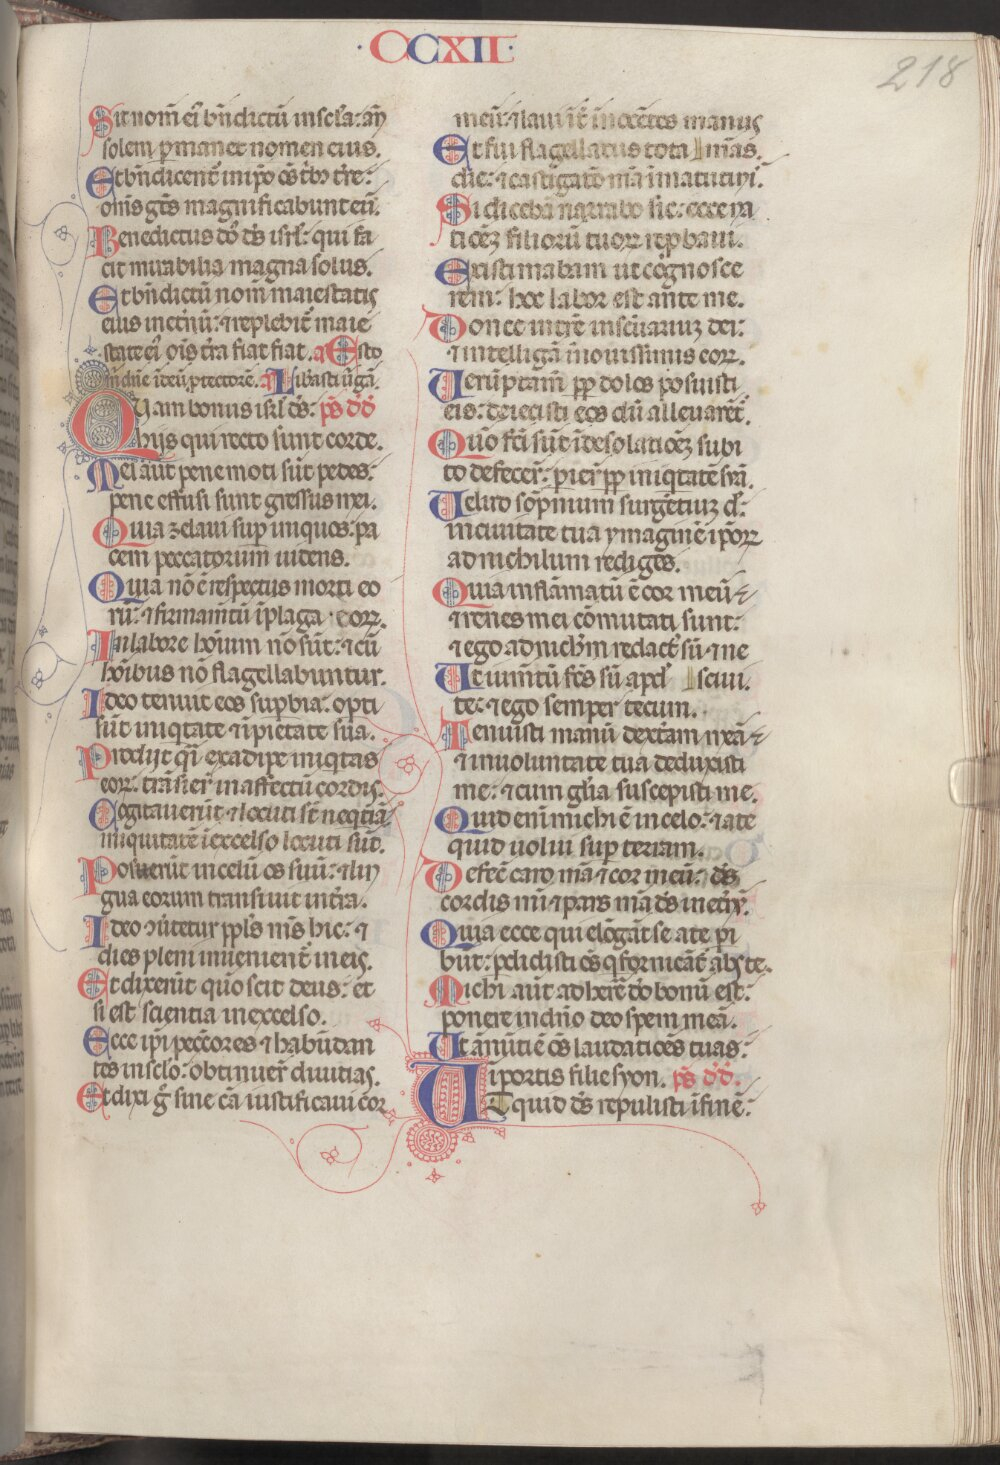 ·CCXII·
218
Sit nom̄ eī bn̄dictū in scl̄a: an̄
solem ꝑmanet nomen eius.
Et bn̄dicent̄ in ip̄o oēs tb̄ꝰ tr̄e:
om̄s gēs magnificabunt eū.
Benedictus dn̄s ds̄ isrl̄: qui fa
cit mirabilia magna solus.
Et bn̄dictū nom̄ maiestatis
eius in etn̄ū: ⁊ replebit̄ maie
state eī om̄s tr̄a fiat fiat. a Esto
m̄ dn̄e ī deū ꝓtectorē. a Libasti ūgā.
Quam bonus isrl̄ ds̄: ps̄ dd̄
hijs qui recto sunt corde.
Mei aūt pene moti sūt pedes:
pene effusi sunt gressus mei.
Quia zelaui suꝑ iniquos: pa
cem peccatorum uidens.
Quia nō ē respectus morti eo
rū: ⁊ firmam̄tū ī plaga eoꝝ.
In labore hoīum nō sūt: ⁊ cū
hoībus nō flagellabuntur.
Ideo tenuit eos suꝑbia: opti
sūt iniq̇tate ⁊ īpietate sua.
Prodijt q̄i ex adipe iniq̇tas
eoꝝ: trāsier̄ in affectū cordis.
Cogitauerūt ⁊ locuti st̄ neq̇tiā
iniquitatē ī excelso locuti sūt.
Posuerūt in celū os suū: ⁊ lin
gua eorum transiuit in tr̄a.
Ideo ꝯūtetur ppl̄s m̄s hic: ⁊
dies pleni inuenient̄ in eis.
Et dixerūt quō scit deus: et
si est scientia in excelso.
Ecce ip̄i pecc̄ores ⁊ habūdan
tes in scl̄o: obtinuer̄ diuitias.
Et dixi g̊ sine cā iustificaui cor
meū: ⁊ laui īt̄ īnocētes manus
Et fui flagellatus tota mās.
die: ⁊ castigatō mā ī matutinī.
Si dicebā narrabo sic: ecce na
tiōēꝫ filiorū tuoꝝ reꝓbaui.
Existimabam ut cognosce
rem: hoc labor est ante me.
Donec intrē in sc̄uariuꝫ dei:
⁊ intelligā ī nouissimis eoꝝ.
Uerūptam̄ pp̄ dolos posuisti
eis: deiecisti eos dū alleuarēt̄.
Quō fc̄i sūt ī desolatiōēꝫ subi
to defecer̄: ꝑier̄ pp̄ iniq̇tatē suā.
Uelud sōpnium surgētiuꝫ dn̄:
in ciuitate tua ymaginē ip̄oꝝ
ad nichilum rediges.
Quia inflāmatū ē cor meū ⁊
⁊ renes mei cōmutati sunt:
⁊ ego ad nichm̄ redact̄ sū ⁊ ne
Ut iumtū fc̄s sū apd̄ sciui.
te: ⁊ ego semper tecum.
Tenuisti manū dextām meā ⁊
⁊ in uoluntate tua deduxisti
me: ⁊ cum gl̄ia suscepisti me.
Quid eni michi ē in celo: ⁊ a te
quid uolui suꝑ terram.
Defec̄ caro mā ⁊ cor meū: ds̄
cordis mī ⁊ pars mā ds̄ in etn̄ꝫ.
Quia ecce qui elōgāt se a te ꝑi
būt: ꝑdidisti oēs q̇ fornicāt̄ abs te.
Michi aūt adherē dō bonū est:
ponere in dn̄o deo spem meā.
Ut ānūtiē oēs laudatiōēs tuas:
in portis filie syon. ps̄ dd̄.
Ut quid ds̄ repulisti ī finē: